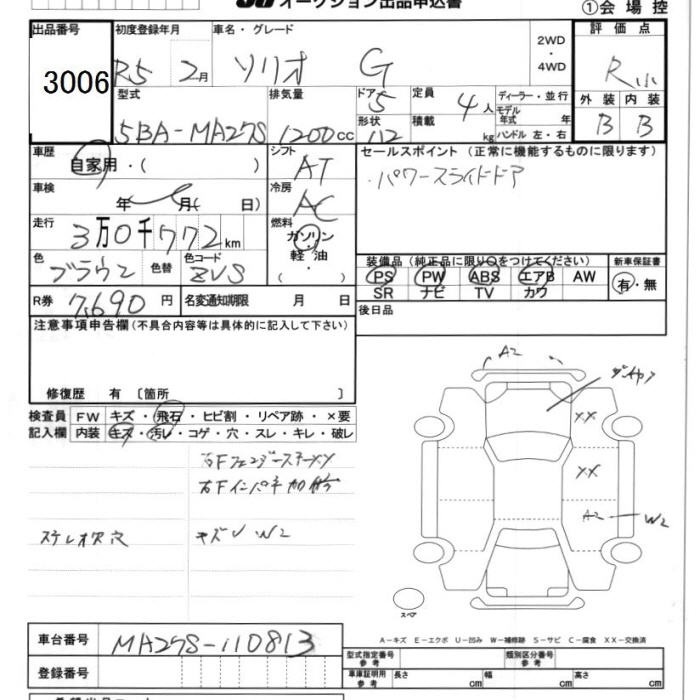 オークション出品申込書
①会場控
出品番号
3006
初度登録年月
R5 2月
車名・グレード
ソリオ G
2WD
・
4WD
評価点
R
型式
5BA-MA27S
排気量
1200cc
ドア
5
形状
112
定員
4人
積載
kg
ディーラー・並行
モデル年式 年
ハンドル 左・右
外装 内装
B B
車歴
自家用・( )
車検
年 月( 日)
走行
3万0千772km
色
ブラウン
色替
色コード
ZVS
シフト
AT
冷房
AC
燃料
ガソリン
・
軽油
・
( )
R券 7,690円
名変通知期限 月 日
セールスポイント(正常に機能するものに限ります)
・パワースライドドア
装備品(純正品に限り○をつけてください)
PS PW ABS エアB AW
SR ナビ TV カワ
新車保証書
有・無
後日品
注意事項申告欄(不具合内容等は具体的に記入して下さい)
修復歴 有〔箇所 〕
検査員記入欄
FW キズ・飛石・ヒビ割・リペア跡・×要
内装 キズ・汚レ・コゲ・穴・スレ・キレ・破レ
右Fインパネ加修
ステレオ穴
キズU W2
A2
XX
XX
A2 W2
スペア
A-キズ E-エクボ U-凹み W-補修跡 S-サビ C-腐食 XX-交換済
車台番号 MA27S-110813
登録番号
型式指定番号 参考
類別区分番号 参考
車庫証明用 参考
長さ cm
幅 cm
高さ cm